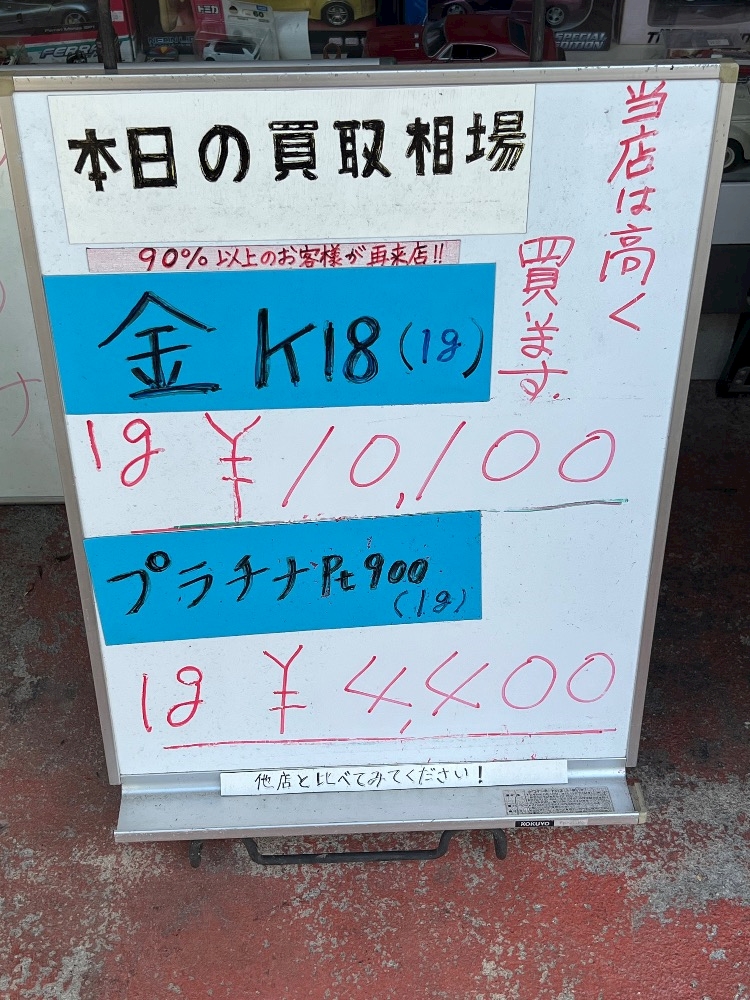 トミカ
FERRA
SPECIAL
EDITION
本日の買取相場
当店は高く
買います。
90%以上のお客様が再来店!!
金 K18(1g)
1g ¥10,100
プラチナPt900
(1g)
1g ¥4,400
他店と比べてみてください!
KOKUYO